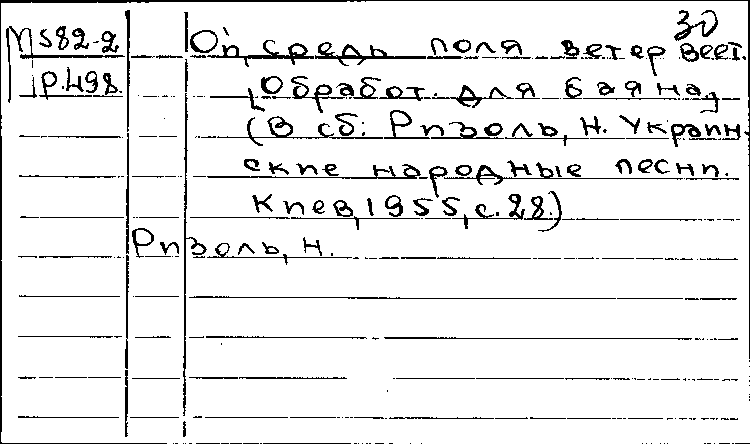 30
М582-2 Ой, средь поля ветер веет.
Р.498. [Обработ. для баяна]
(В сб: Ризоль, Н. Украин-
ские народные песни.
Киев, 1955, с.28.)
Ризоль, Н.